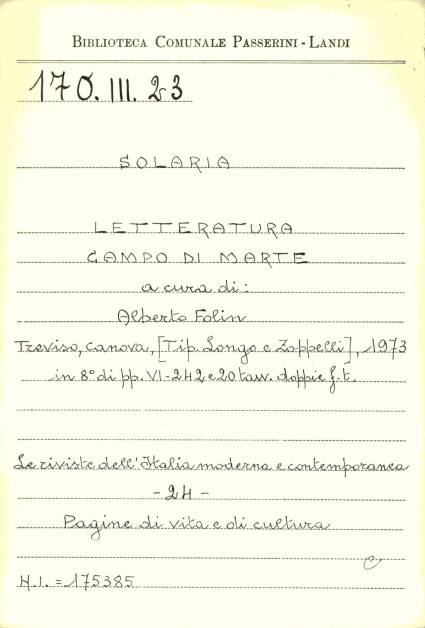 BIBLIOTECA COMUNALE PASSERINI - LANDI
170. III. 23
SOLARIA
LETTERATURA
CAMPO DI MARTE
a cura di:
Alberto Folin
Treviso, Canova, [Tip. Longo e Zoppelli], 1973
in 8° di pp. VI-242 e 20 tav. doppie f.t.
Le riviste dell'Italia moderna e contemporanea
- 24 -
Pagine di vita e di cultura
C
N.I. = 175385